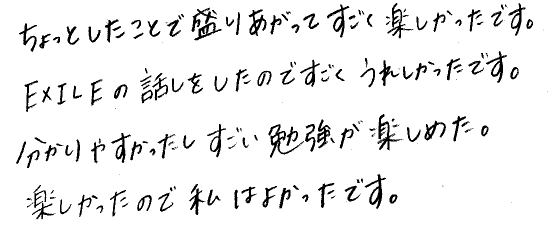 ちょっとしたことで盛りあがってすごく楽しかったです。
EXILEの話しをしたのですごくうれしかったです。
分かりやすかったしすごい勉強が楽しめた。
楽しかったので私はよかったです。